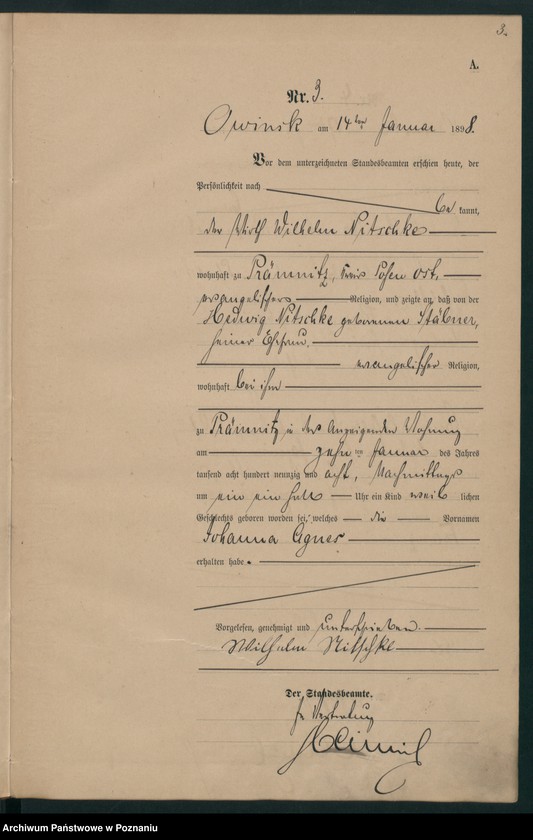 3.
A.
Nr. 3.
Owinsk am 14ten Januar 1898.
Vor dem unterzeichneten Standesbeamten erschien heute, der
Persönlichkeit nach
be kannt,
der Wirth Wilhelm Nitschke
wohnhaft zu Prämnitz, Kreis Posen Ost,
evangelischer Religion, und zeigte an, daß von der
Hedwig Nitschke geborenen Stäbner,
seiner Ehefrau,
evangelischer Religion,
wohnhaft bei ihm
zu Prämnitz in des Anzeigenden Wohnung
am zehn ten Januar des Jahres
tausend acht hundert neunzig und acht, Nachmittags
um ein ein halb Uhr ein Kind weib lichen
Geschlechts geboren worden sei, welches die Vornamen
Johanna Agnes
erhalten habe.
Vorgelesen, genehmigt und unterschrieben.
Wilhelm Nitschke
Der Standesbeamte.
In Vertretung
Archiwum Państwowe w Poznaniu